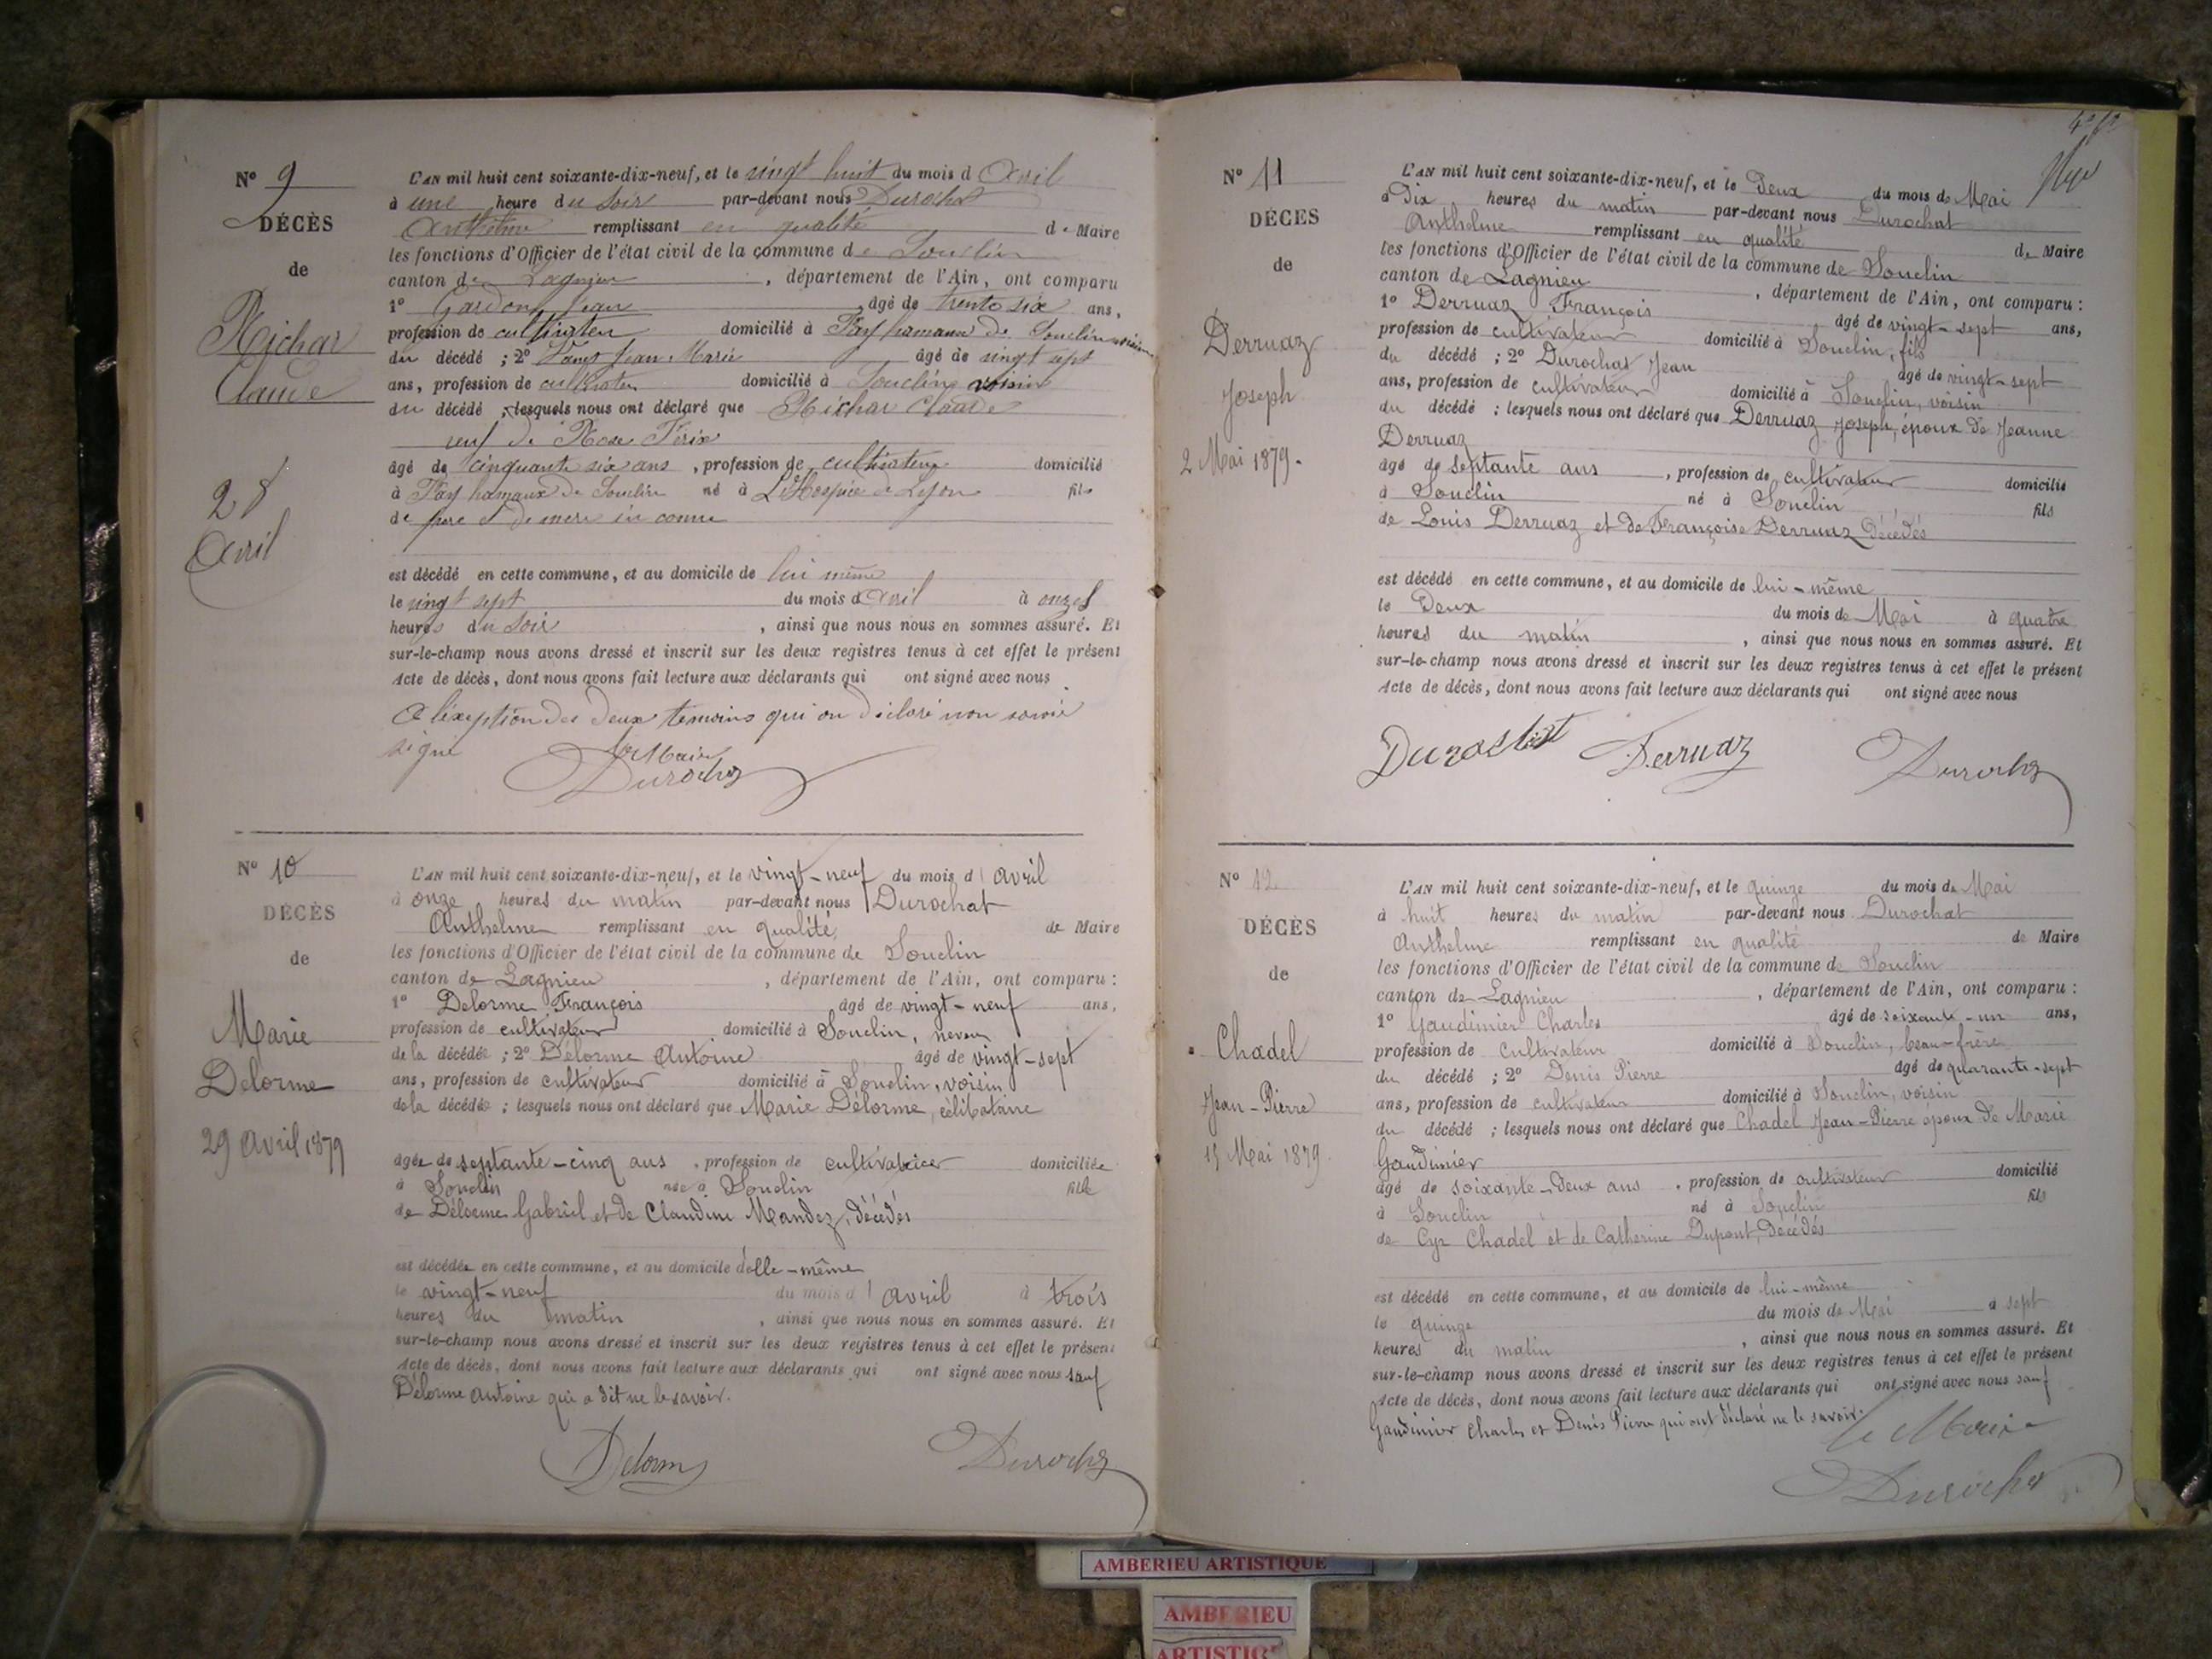 N° 9
DÉCÈS
de
Michar
Claude
28
Avril
L'AN mil huit cent soixante-dix-neuf, et le vingt huit du mois d Avril
à une heure du soir par-devant nous Durochat
Anthelme remplissant en qualité de Maire
les fonctions d'Officier de l'état civil de la commune de Souclin
canton de Lagnieu, département de l'Ain, ont comparu
1° Gardon Jean, âgé de trente six ans,
profession de cultivateur domicilié à Fay hamaux de Souclin voisin
du décédé ; 2° Jean Marie âgé de vingt sept
ans, profession de cultivateur domicilié à Souclin voisin
du décédé ; lesquels nous ont déclaré que Michar Claude
veuf de Rose
âgé de cinquante six ans, profession de cultivateur domicilié
à Fay hamaux de Souclin né à L'Hospice de Lyon fils
de père et de mere in connu
est décédé en cette commune, et au domicile de lui même
le vingt sept du mois d Avril à onze
heures du soir, ainsi que nous nous en sommes assuré. Et
sur-le-champ nous avons dressé et inscrit sur les deux registres tenus à cet effet le présent
Acte de décès, dont nous avons fait lecture aux déclarants qui ont signé avec nous
A l'exeption des deux temoins qui on déclaré non savoir
signé
le Maire
Durochat
N° 10
DÉCÈS
de
Marie
Delorme
29 Avril 1879
L'AN mil huit cent soixante-dix-neuf, et le vingt-neuf du mois d'avril
à onze heures du matin par-devant nous Durochat
Anthelme remplissant en qualité de Maire
les fonctions d'Officier de l'état civil de la commune de Souclin
canton de Lagnieu, département de l'Ain, ont comparu :
1° Delorme François âgé de vingt-neuf ans,
profession de cultivateur domicilié à Souclin, neveu
de la décédée ; 2° Délorme Antoine âgé de vingt-sept
ans, profession de cultivateur domicilié à Souclin, voisin
de la décédée ; lesquels nous ont déclaré que Marie Délorme, célibataire
âgée de septante-cinq ans, profession de cultivatrice domiciliée
à Souclin née à Souclin fille
de Délorme Gabriel et de Claudine Mandoz, décédés
est décédée en cette commune, et au domicile d'elle-même
le vingt-neuf du mois d'avril à trois
heures du matin, ainsi que nous nous en sommes assuré. Et
sur-le-champ nous avons dressé et inscrit sur les deux registres tenus à cet effet le présent
Acte de décès, dont nous avons fait lecture aux déclarants qui ont signé avec nous sauf
Délorme Antoine qui a dit ne le savoir.
Delorme Durochat
N° 11
DÉCES
de
Derruaz
Joseph
2 Mai 1879.
L'AN mil huit cent soixante-dix-neuf, et le Deux du mois de Mai
à Dix heures du matin par-devant nous Durochat
Anthelme remplissant en qualité de Maire
les fonctions d'Officier de l'état civil de la commune de Souclin
canton de Lagnieu, département de l'Ain, ont comparu :
1° Derruaz François âgé de vingt-sept ans,
profession de cultivateur domicilié à Souclin, fils
du décédé ; 2° Durochat Jean âgé de vingt-sept
ans, profession de cultivateur domicilié à Souclin, voisin
du décédé ; lesquels nous ont déclaré que Derruaz Joseph, époux de Jeanne
Derruaz
âgé de septante ans, profession de cultivateur domicilié
à Souclin né à Souclin fils
de Louis Derruaz et de Françoise Derruaz décédés
est décédé en cette commune, et au domicile de lui-même
le Deux du mois de Mai à quatre
heures du matin, ainsi que nous nous en sommes assuré. Et
sur-le-champ nous avons dressé et inscrit sur les deux registres tenus à cet effet le présent
Acte de décès, dont nous avons fait lecture aux déclarants qui ont signé avec nous
Durochat Derruaz Durochat
N° 12
DÉCÈS
de
Chadel
Jean-Pierre
15 Mai 1879.
L'AN mil huit cent soixante-dix-neuf, et le quinze du mois de Mai
à huit heures du matin par-devant nous Durochat
Anthelme remplissant en qualité de Maire
les fonctions d'Officier de l'état civil de la commune de Souclin
canton de Lagnieu, département de l'Ain, ont comparu :
1° Gaudimier Charles âgé de soixante-un ans,
profession de cultivateur domicilié à Souclin, beau-frère
du décédé ; 2° Denis Pierre âgé de quarante-sept
ans, profession de cultivateur domicilié à Souclin, voisin
du décédé ; lesquels nous ont déclaré que Chadel Jean-Pierre époux de Marie
Gaudimier
âgé de soixante-deux ans, profession de cultivateur domicilié
à Souclin né à Souclin fils
de Cyr Chadel et de Catherine Dupont, décédés
est décédé en cette commune, et au domicile de lui-même
le quinze du mois de Mai à sept
heures du matin, ainsi que nous nous en sommes assuré. Et
sur-le-champ nous avons dressé et inscrit sur les deux registres tenus à cet effet le présent
Acte de décès, dont nous avons fait lecture aux déclarants qui ont signé avec nous sauf
Gaudimier Charles et Denis Pierre qui ont déclaré ne le savoir.
le Maire
Durochat
AMBERIEU ARTISTIQUE
AMBERIEU
ARTISTIQ